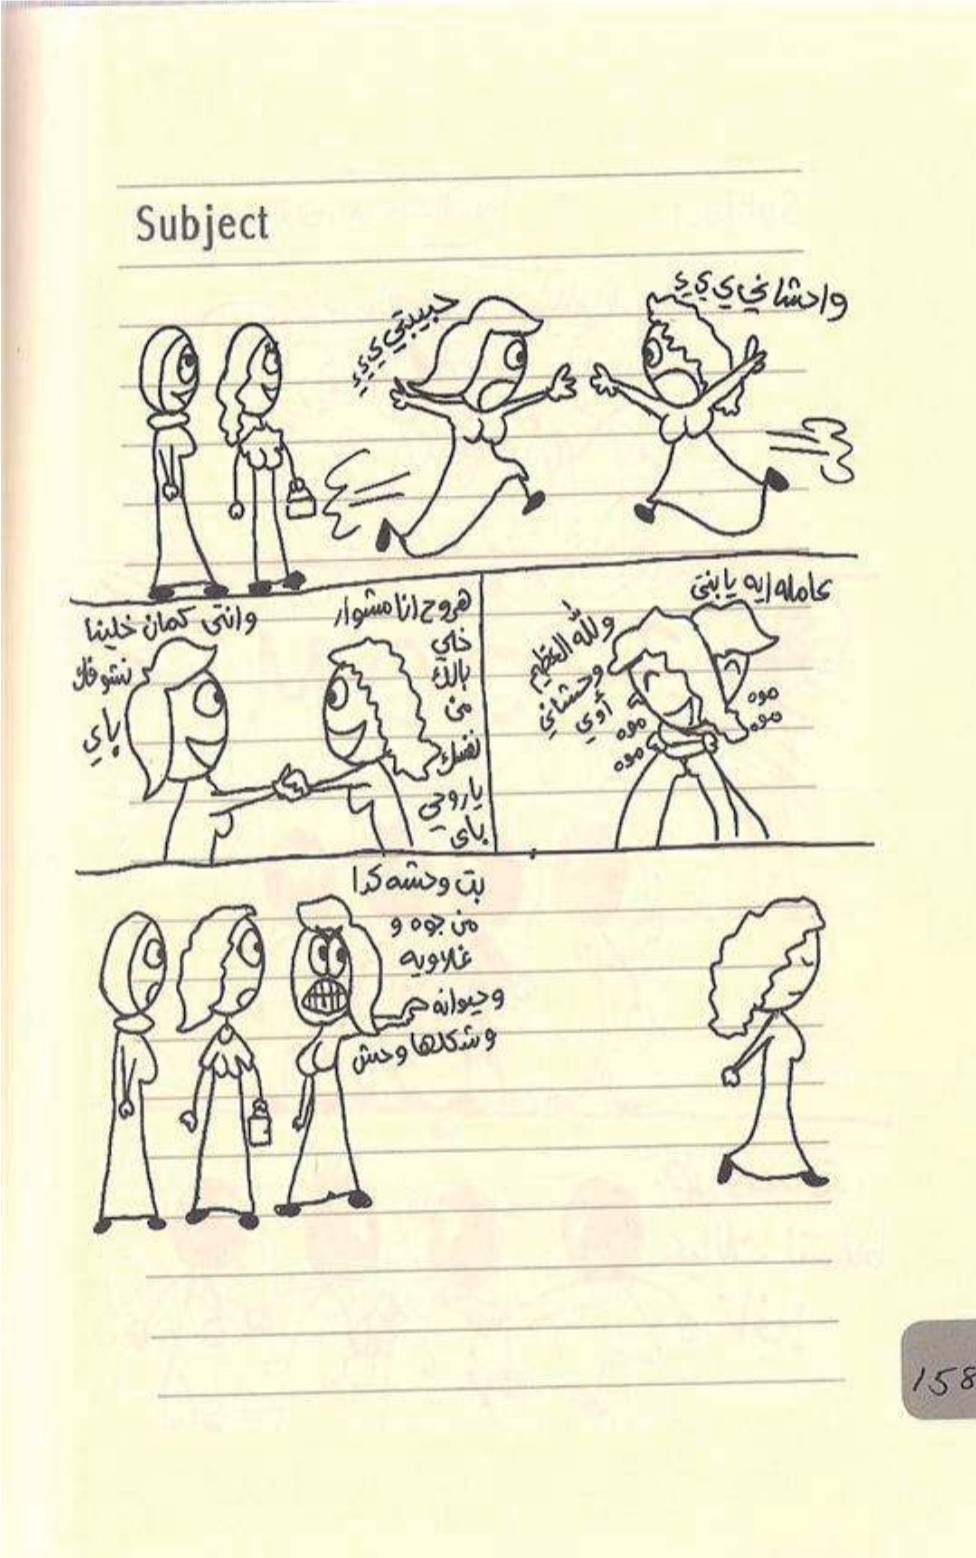 Subject
واحشاني ي ي ي
حبيبتي ي ي ي
عامله إيه يا بنتي
والله العظيم
وحشاني
أوي
موه
موه
موه
موه
هروح انا مشوار
خلي
بالك
من
نفسك
يا روحي
باي
وانتي كمان خلينا
نشوفك
باي
بت وحشه كدا
من جوه و
غلاويه
وحيوانه
وشكلها وحش
158